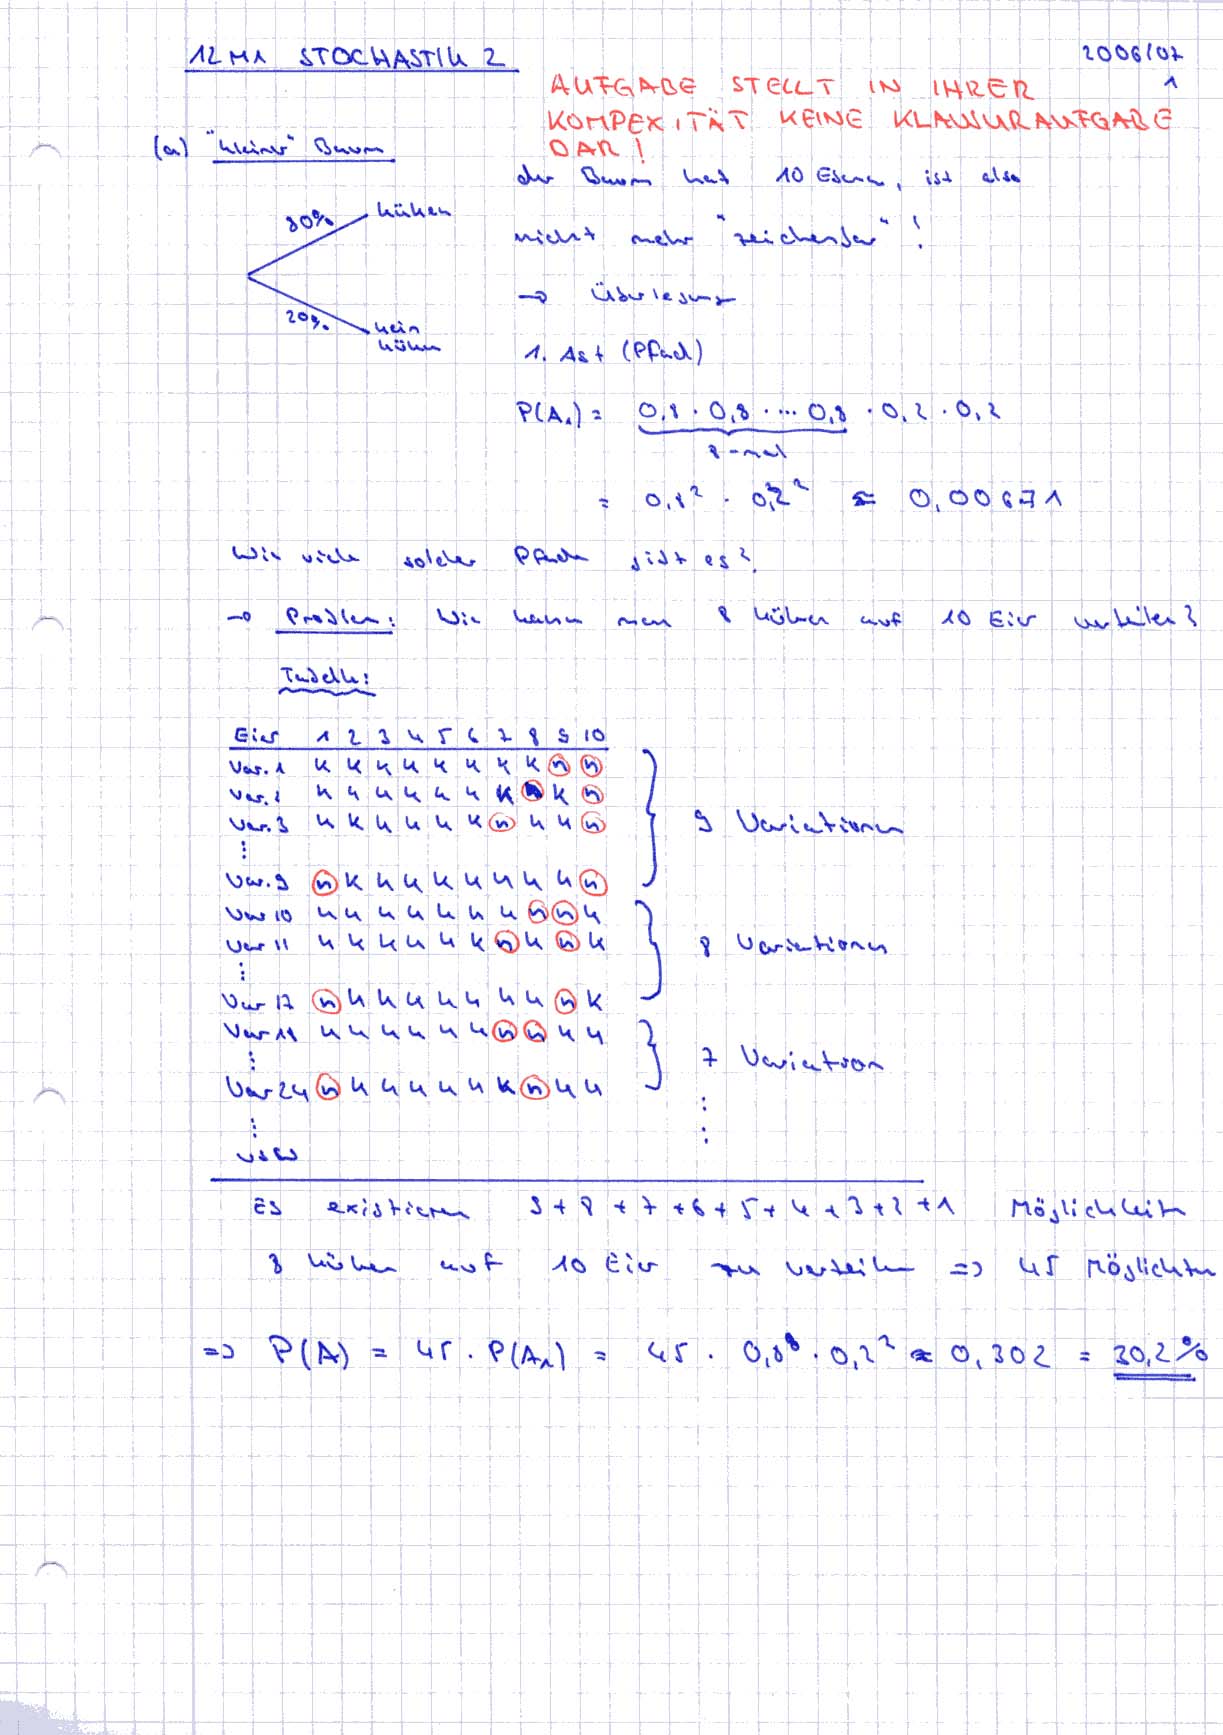 12 M1 STOCHASTIK 2
2006/07
1
AUFGABE STELLT IN IHRER
KOMPEXITÄT KEINE KLAUSURAUFGABE
DAR!
(a) "kleiner" Baum
der Baum hat 10 Ebenen, ist also
nicht mehr "zeichenbar"!
80% Küken
20% kein Küken
→ Überlegung
1. Ast (Pfad)
P(A₁) = 0,8 · 0,8 · ... 0,8 · 0,2 · 0,2
8-mal
= 0,8² · 0,2² ≈ 0,00671
Wie viele solcher Pfade gibt es?
→ Problem: Wie kann man 8 Küken auf 10 Eier verteilen?
Tabelle:
Eier 1 2 3 4 5 6 7 8 9 10
Var. 1 K K K K K K K K n n
Var. 2 K K K K K K K n K n
Var. 3 K K K K K K n K K n
⋮
Var. 9 n K K K K K K K K n
9 Variationen
Var 10 K K K K K K K n n K
Var 11 K K K K K K n K n K
⋮
Var 17 n K K K K K K K n K
8 Variationen
Var 18 K K K K K K n n K K
⋮
Var 24 n K K K K K K n K K
7 Variation
⋮
usw
Es existieren 9+8+7+6+5+4+3+2+1 Möglichkeiten
8 Küken auf 10 Eier zu verteilen => 45 Möglichk
=> P(A) = 45 · P(A₁) = 45 · 0,8⁸ · 0,2² ≈ 0,302 = 30,2%